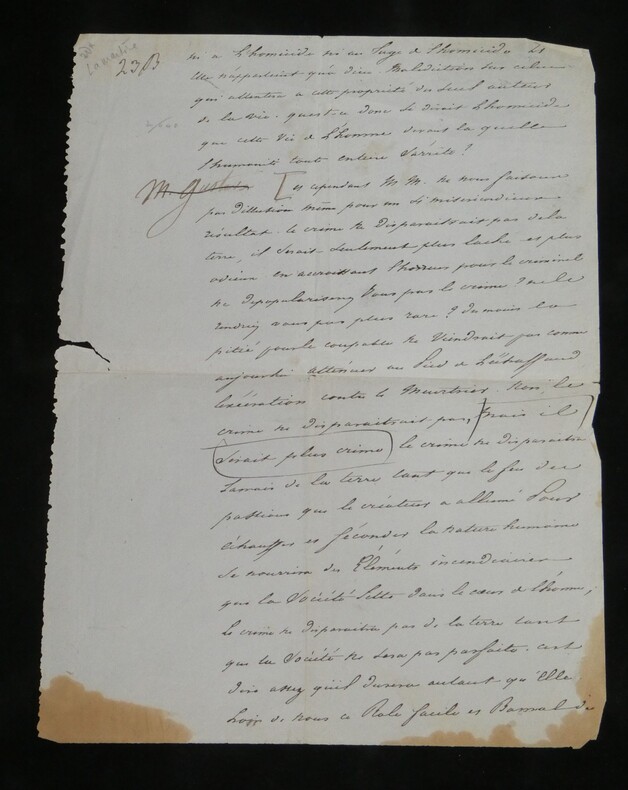 23 B
ni a L'homicide ni au Juge de l'homicide
elle n'appartient qu'a dieu. Malediction sur celui
qui attentera a cette propriété du seul auteur
de la vie. qu'est-ce donc se dirait L'homicide
que cette vie de L'homme devant la quelle
l'humanité toute entiere s'arrête!
M. Gustave
Et cependant M M. ne nous faisons
pas d'illusion même pour un si misericordieux
résultat. le crime ne disparaitrait pas de la
terre, il serait seulement plus lache et plus
odieux en accroissant l'horreur pour le criminel
ne depopulariserez vous pas le crime? ne le
rendrez vous pas plus rare? du moins la
pitié pour le coupable ne viendrait pas comme
aujourdhui attenuer au Pied de L'échaffaud
l'exécration contre le Meurtrier. Non, le
crime ne disparaitrait pas, mais il
serait plus crime le crime ne disparaitra
Jamais de la terre tant que le feu des
passions que le créateur a allumé Pour
échauffer et féconder la nature humaine
se nourrira des Eléments incendiaires
que la Société jette dans le cœur de l'homme;
Le crime ne disparaitra pas de la terre tant
que la Société ne sera pas parfaite. c'est
dire assez qu'il durera autant qu'Elle
Loin de nous ce Role facile et Bannal de